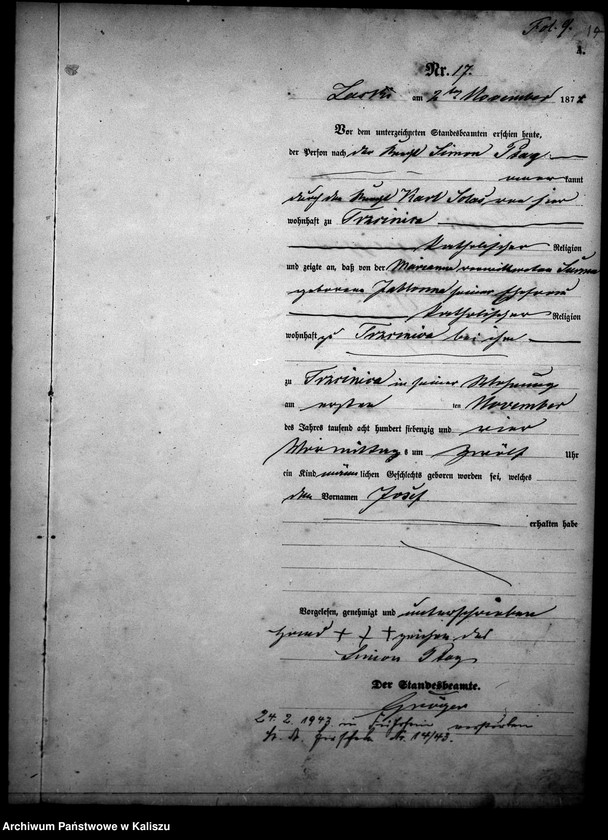 Fol. 9. 14
4.
Nr. 17.
am 2ten November 1874
Vor dem unterzeichneten Standesbeamten erschien heute,
der Person nach der Knecht Simon Ptag
kannt
durch den Knecht Karl von hier
wohnhaft zu Trzcinica
katholischer Religion
und zeigte an, daß von der Marianna
geborene Jablonna seiner Ehefrau
katholischer Religion
wohnhaft zu Trzcinica bei ihm
zu Trzcinica in seiner Wohnung
am ersten ten November
des Jahres tausend acht hundert siebenzig und vier
Vormittags um zwölf Uhr
ein Kind männlichen Geschlechts geboren worden sei, welches
den Vornamen Josef
erhalten habe
Vorgelesen, genehmigt und unterschrieben
Hand + + + zeichen des
Simon Ptag
Der Standesbeamte.
24.2.1943 in verstorben
St. A. Nr. 14/43.
Archiwum Państwowe w Kaliszu